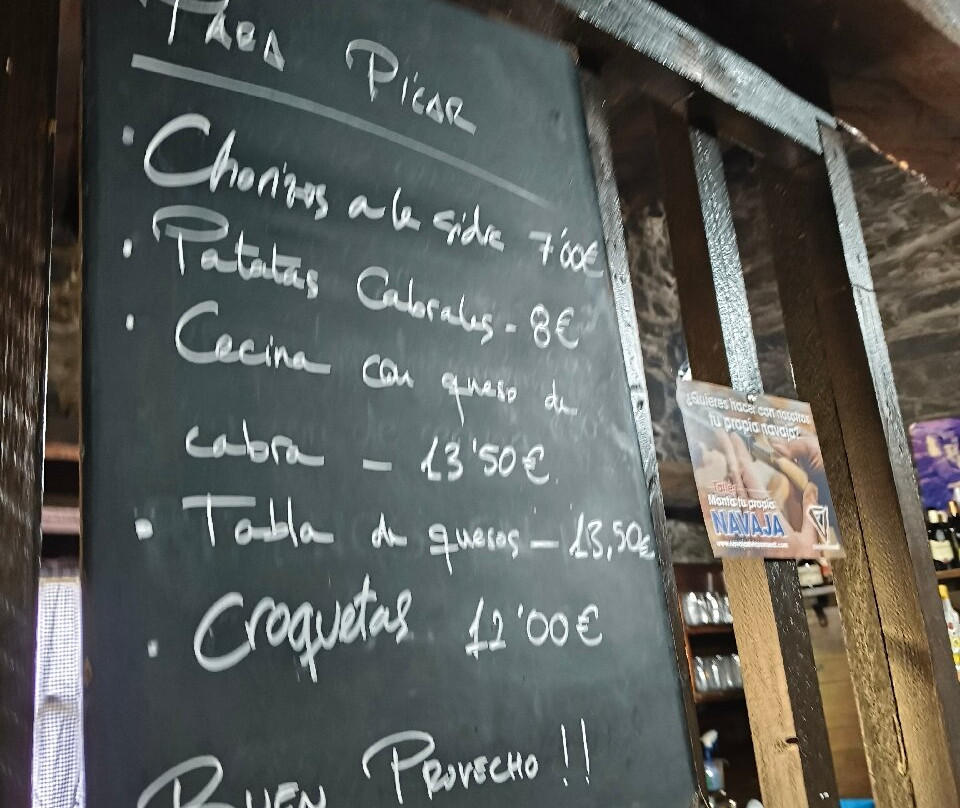 PARA PICAR
· Chorizos a la sidra 7'00€
· Patatas Cabrales - 8€
· Cecina con queso de
cabra - 13'50€
· Tabla de quesos - 13,50€
· Croquetas 12'00€
BUEN PROVECHO !!
¿Quieres hacer con nosotros
tu propia navaja?
Taller
Monta tu propia
NAVAJA